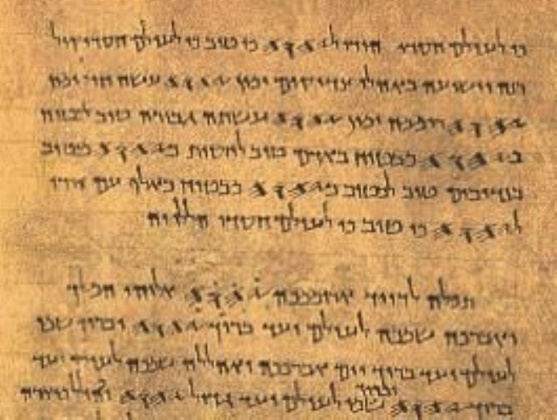 כי לעולם חסדו הודו ל𐤉𐤄𐤅𐤄 כי טוב כי לעולם חסדו קול
רנה וישועה באהלי צדיקים ימין 𐤉𐤄𐤅𐤄 עשה חיל ימין
𐤉𐤄𐤅𐤄 רוממה ימין 𐤉𐤄𐤅𐤄 עשתה גבורה טוב לבטוח
ב𐤉𐤄𐤅𐤄 מבטוח באדם טוב לחסות ב𐤉𐤄𐤅𐤄 מבטוח
בנדיבים טוב לבטוח ב𐤉𐤄𐤅𐤄 מבטוח באלף עם הודו
ל𐤉𐤄𐤅𐤄 כי טוב כי לעולם חסדו הללויה
תפלה לדויד ארוממכה 𐤉𐤄𐤅𐤄 אלוהי המלך
ואברכה שמכה לעולם ועד ברוך 𐤉𐤄𐤅𐤄 וברוך שמו
לעולם ועד ברוך יום אברככה ואהללה שמכה לעולם ועד
ברוך 𐤉𐤄𐤅𐤄 וברוך שמו לעולם ועד גדול 𐤉𐤄𐤅𐤄 ומהולל מאודה